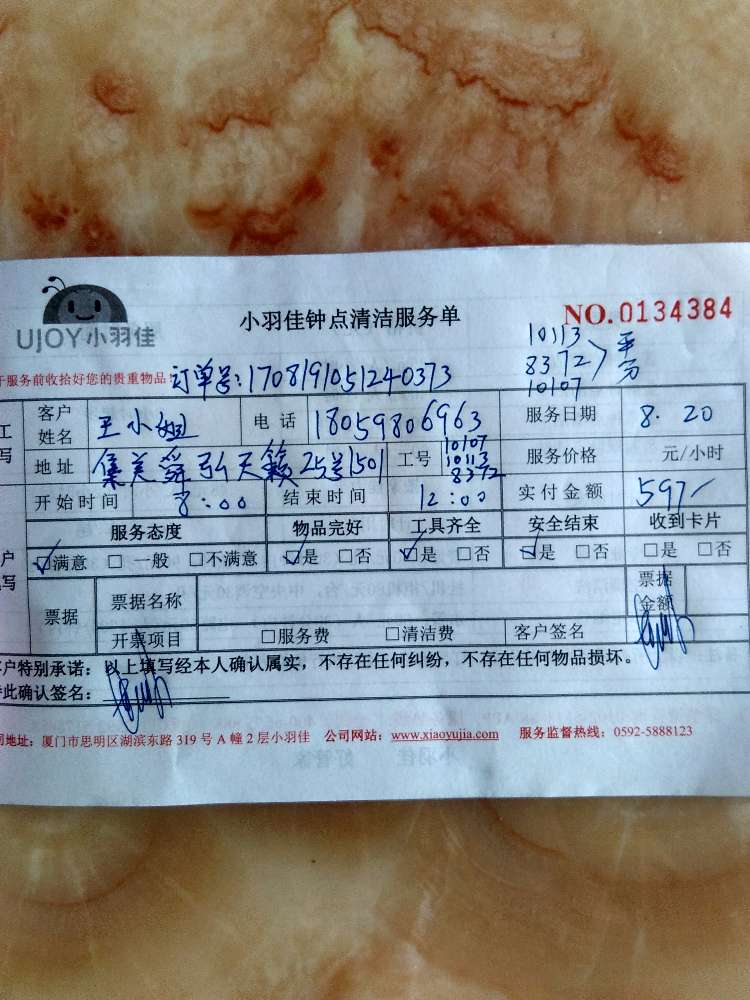 UJOY小羽佳
小羽佳钟点清洁服务单
NO. 0134384
10113
8372 平分
10107
于服务前收拾好您的贵重物品 订单号:170819105124 0373
工 客户姓名 王小姐 电话 18059806963 服务日期 8.20
写 地址 集美舜弘天籁25号1501 工号 10107 10113 8372 服务价格 元/小时
开始时间 8:00 结束时间 12:00 实付金额 597/
服务态度 物品完好 工具齐全 安全结束 收到卡片
户 ☑满意 □一般 □不满意 ☑是 □否 ☑是 □否 ☑是 □否 □是 □否
写 票据 票据名称 票据金额
开票项目 □服务费 □清洁费 客户签名
客户特别承诺：以上填写经本人确认属实，不存在任何纠纷，不存在任何物品损坏。
此确认签名：
司地址：厦门市思明区湖滨东路 319 号 A 幢 2 层小羽佳 公司网站：www.xiaoyujia.com 服务监督热线：0592-5888123